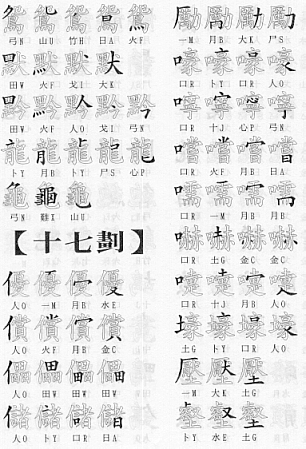 鴛鴛鴛鴛鴛
弓N 山U 竹H 日A 火F
默默默默
田W 火F 戈I 大K
黔黔黔黔黔
田W 火F 人O 戈I 弓N
龍龍龍龍龍
卜Y 月B 卜Y 尸S 心P
龜龜龜
弓N 難X 山U
【十七劃】
優優優優
人O 一M 月B 水E
償償償償
人O 火F 月B 金C
儡儡儡儡
人O 田W 田W 田W
儲儲儲儲
人O 卜Y 口R 日A
勵勵勵勵
一M 月B 大K 尸S
嚎嚎嚎嚎
口R 卜Y 口R 人O
嚀嚀嚀嚀
口R 十J 心P 弓N
嚐嚐嚐嚐
口R 火F 月B 日A
嚅嚅嚅嚅
口R 一M 月B 月B
嚇嚇嚇嚇
口R 土G 金C 金C
嚏嚏嚏嚏
口R 十J 月B 人O
壕壕壕壕
土G 卜Y 口R 人O
壓壓壓
一M 大K 土G
壑壑壑
卜Y 水E 土G